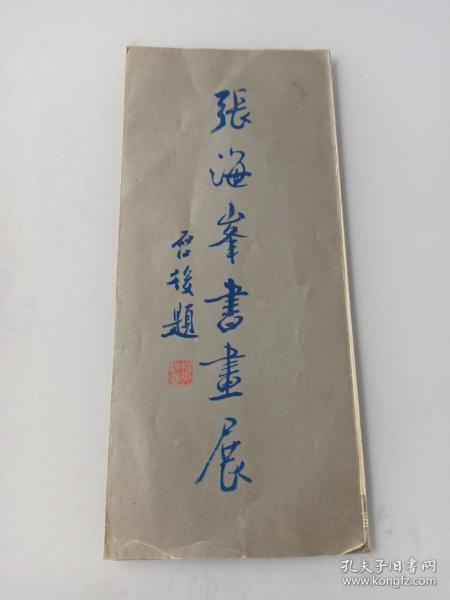 張海峯書畫展
啓後題
孔夫子旧书网
www.kongfz.com